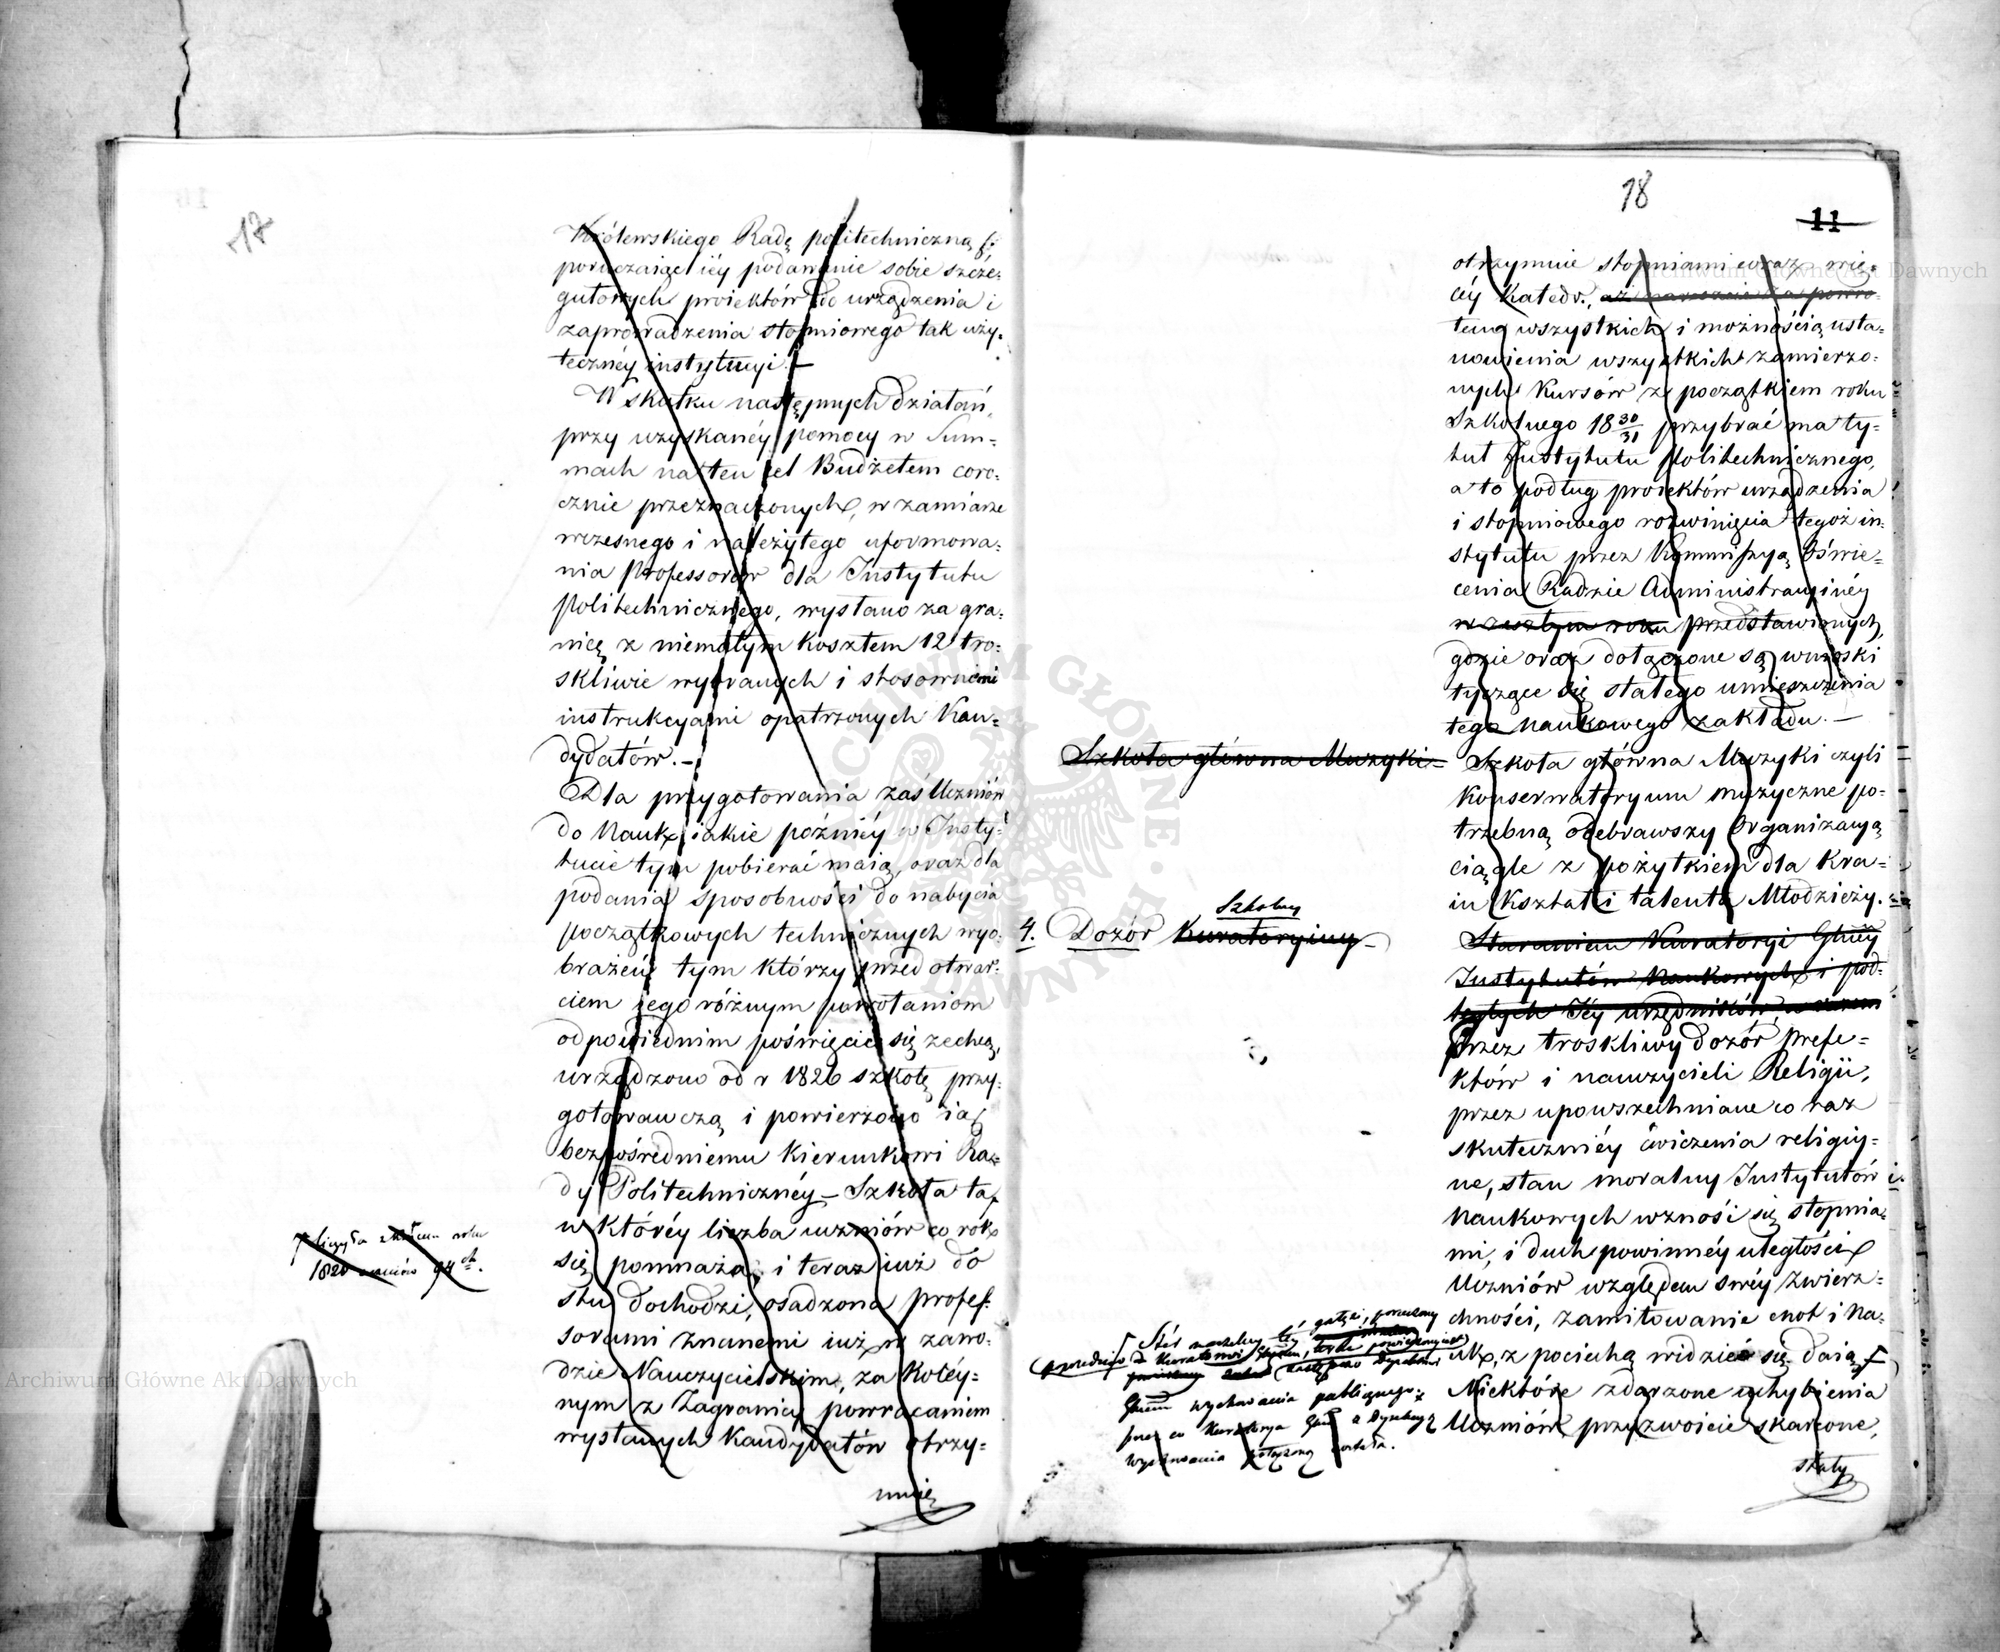 17
Królewskiego Radę politechniczną
poruczaiąc iéy podawanie sobie szcze-
gułowych proiektów do urządzenia i
zaprowadzenia stopniowego tak uży-
tecznéy instytucyi. —
W skutku następnych działań,
przy uzyskanéy pomocy w Sum-
mach na ten cel Budżetem coro-
cznie przeznaczonych, w zamiarze
wczesnego i należytego uformowa-
nia Professorów dla Instytutu
Politechnicznego, wysłano za gra-
nicę z niemałym kosztem 12 tro-
skliwie wybranych i stosownémi
instrukcyami opatrzonych Kan-
dydatów. —
Dla przygotowania zaś Uczniów
do Nauk, iakie późniéy w Insty-
tucie tym pobierać maią, oraz dla
podania sposobności do nabycia
początkowych technicznych wyo-
brażeń tym którzy przed otwar-
ciem jego różnym powołaniom
odpowiednim poświęcić się zechcą,
urządzono od r 1826 szkołę przy-
gotowawczą i powierzono ią
bezpośredniemu kierunkowi Ra-
dy Politechnicznéy — Szkoła ta,
w któréy liczba uczniów co rok
się pomnaża, i teraz iuż do
stu dochodzi, osadzona profes-
sorami znanemi iuż w zawo-
dzie Nauczycielskim, za koléy-
nym z Zagranicy powracaniem
wysłanych Kandydatów otrzy-
muie
liczyła z końcem roku
1820 uczniów 94ch.
18
11
otrzymuie stopniami coraz wię-
céy Katedr,
temu wszystkich i możnością usta-
nowienia wszystkich zamierzo-
nych Kursów z początkiem roku
Szkolnego 18 30/31 przybrać ma ty-
tuł Instytutu Politechnicznego,
a to podług proiektów urządzenia
i stopniowego rozwinięcia tegoż in-
stytutu przez Kommissyą Oświe-
cenia Radzie Administracyinéy
w zeszłym roku przedstawionych,
gdzie oraz dołączone są wnioski
tyczące się stałego umieszczenia
tego Naukowego zakładu. —
Szkoła główna Muzyki — Szkoła główna Muzyki czyli
Konserwatoryum muzyczne po-
trzebną odebrawszy Organizacyą
ciągle z pożytkiem dla Kra-
iu kształci talenta Młodzieży.
Szkolny
4. Dozór Kuratoryiny —
Staraniem Kuratoryi Głnéy
Instytutów Naukowych i pod-
ległych Jéy urzędników,
Przez troskliwy dozór Prefe-
któw i nauczycieli Religii,
przez upowszechniane co raz
skuteczniéy ćwiczenia religiy-
ne, stan moralny Instytutów
Naukowych wznosi się stopnia-
mi, i duch powinnéy uległości
Uczniów względem swéy Zwierz-
chności, zamiłowanie cnot i Na-
uk, z pociechą widzieć się daią
Niektóre zdarzone uchybienia
Uczniów przyzwoicie skarcone,
stały
Stér naczelny téy gałęzi, poruczony
poprzednio Kuratorowi
Głnemu wychowania publicznego,
przez co Kuratorya Głna z Dyrekcyą
Wychowania połączoną została.